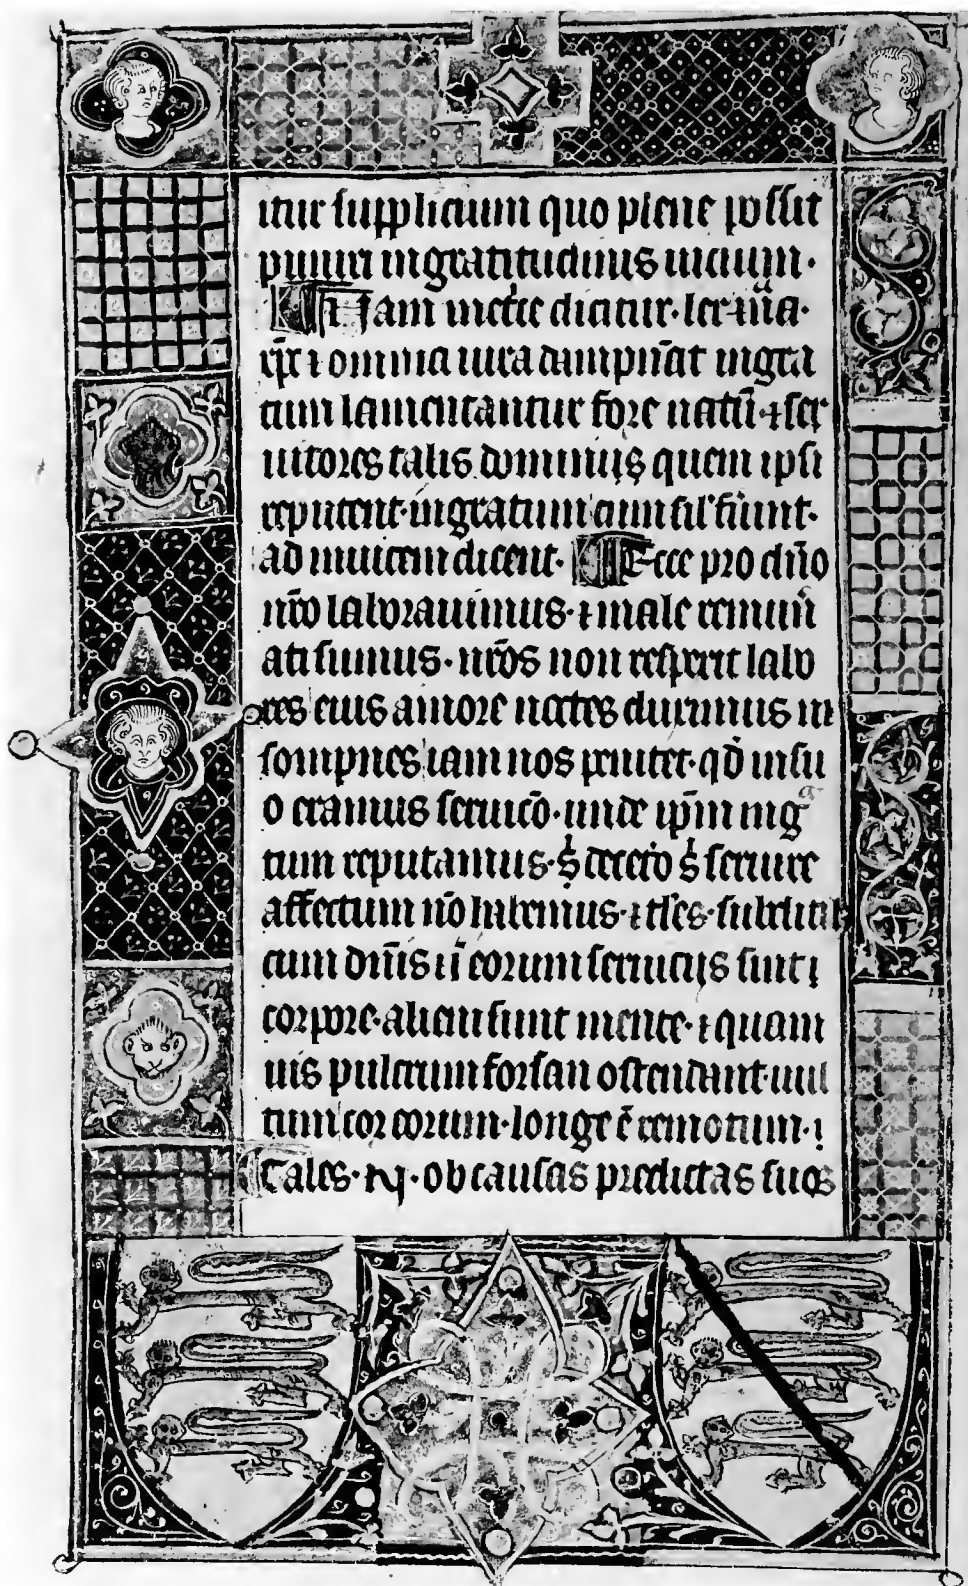 itur supplicium quo plene possit
puniri ingratitudinis uicium.
Nam merce dicitur. lex
xp̄i ⁊ omnia iura dampnāt ingra
tum lamentantur fore natū. ⁊ ser
uitores talis dominus quem ipsi
reputent. ingratum cum sil' fiunt.
ad inuicem dicent. Ecce pro dn̄o
nr̄o laborauimus. ⁊ male remun̄
ati sumus. nr̄os non respexit labo
res eius amore noctes duximus in
sompnes iam nos penitet. qđ in su
o eramus seruicō. unde ip̄m ingͣ
tum reputamus. decet'o seruire
affectum nō habemus. ⁊ tl'es. subditi
cum dn̄is ī eorum seruicijs sint ī
corpore. alieni sunt mente. ⁊ quam
uis pulcrum forsan ostendant. uul
tum cor eorum. longe ē remotum. ī
Tales. ob causas predictas suos